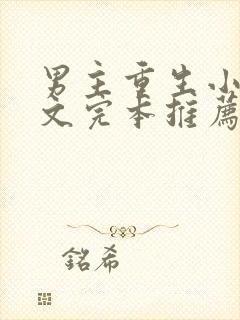 男主重生小
文完本推薦
銘希